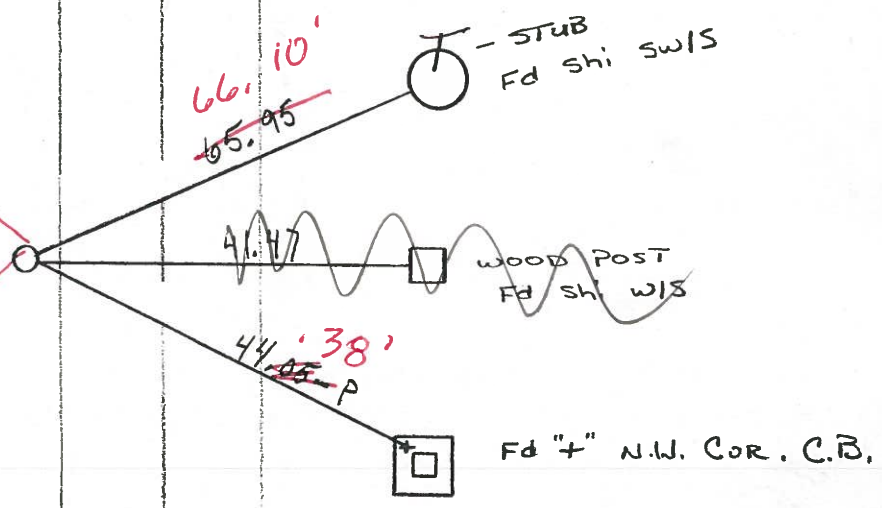 66.10'
65.95
- STUB
Fd shi SW/S
41.47
WOOD POST
Fd shi W/S
44.05 P
.38'
Fd "+" N.W. COR. C.B.